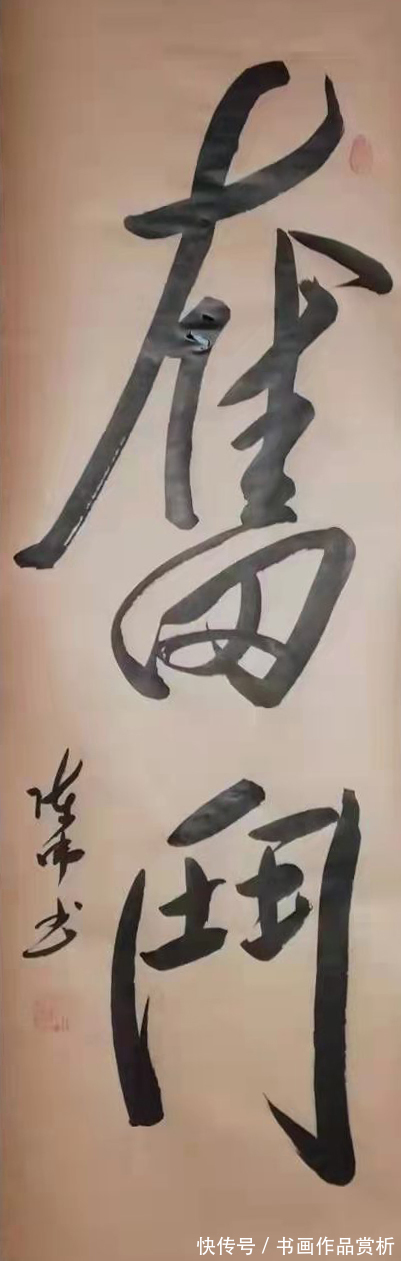 奮鬥
陈 书
快传号 / 书画作品赏析